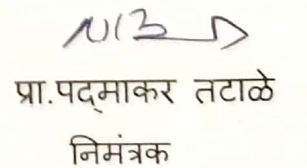 प्रा.पद्माकर तटाळे
निमंत्रक